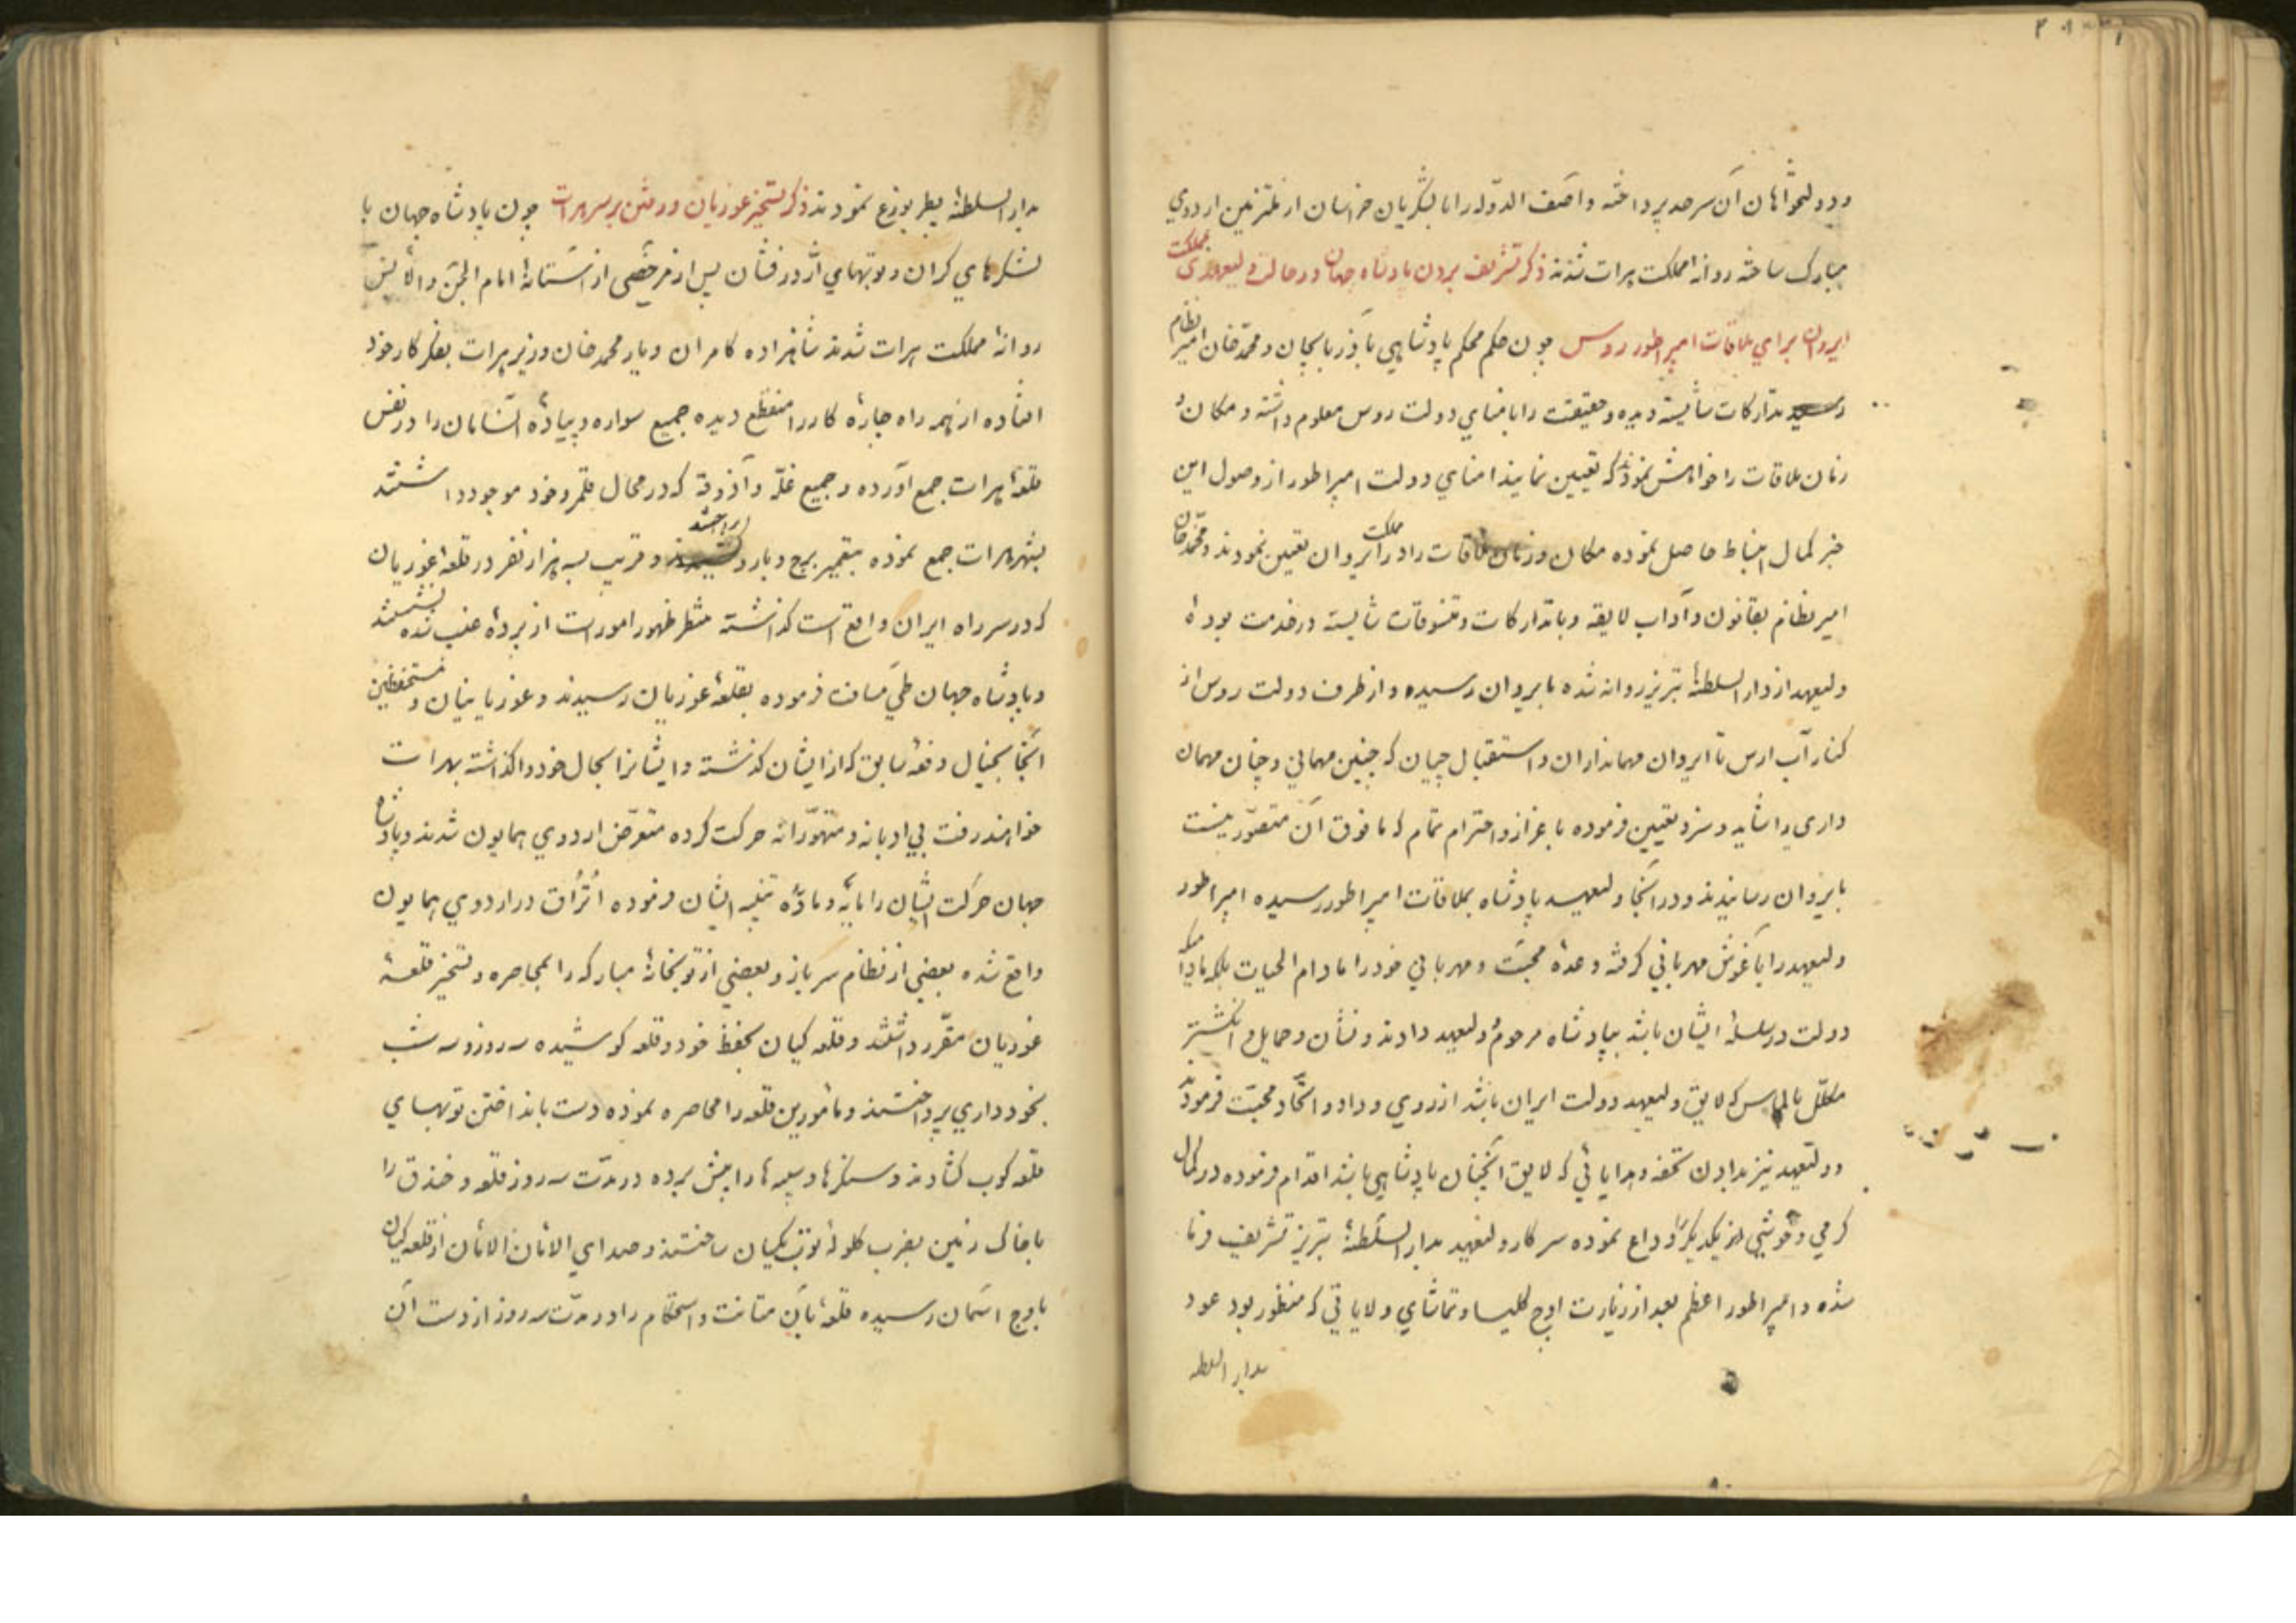 ودولتخواهان آن سرحد پرداخته و آصف الدوله را با لشگریان خراسان از ملتزمین اردوی
مبارک ساخته روانهٔ مملکت هرات شدند ذکر تشریف بردن پادشاه جهان در حالت ولیعهدی بمملکت
ایروان برای ملاقات امپراطور روس چون حکم محکم پادشاهی بآذربایجان و محمد خان امیر نظام
رسید تدارکات شایسته دیده و حقیقت را بامنای دولت روس معلوم داشته و مکان و
زمان ملاقات را خواهش نمودند که تعیین نمایند امنای دولت امپراطور از وصول این
خبر کمال انبساط حاصل نموده مکان و زمان ملاقات را در مملکت ایروان تعیین نمودند و محمد خان
امیر نظام بقانون و آداب لایقه و با تدارکات و تنسوقات شایسته در خدمت بوده
ولیعهد از دار السلطنهٔ تبریز روانه شده بایروان رسیده و از طرف دولت روس از
کنار آب ارس تا ایروان مهمانداران و استقبال چیان که چنین مهمانی و چنان مهمان
داری را شاید و سزد تعیین فرموده با عزاز و احترام تمام که مافوق آن متصوّر نیست
بایروان رسانیدند و در آنجا ولیعهد پادشاه بملاقات امپراطور رسیده امپراطور
ولیعهد را بآغوش مهربانی گرفته وعدهٔ محبت و مهربانی خود را مادام الحیات بلکه مادامیکه
دولت در سلسلهٔ ایشان باشد بپادشاه مرحوم و ولیعهد دادند و نشان و حمایل و انگشتر
مکلّل بالماس که لایق ولیعهد دولت ایران باشد از روی وداد و اتحاد و محبّت فرمودند
و ولیعهد نیز بدادن تحفه و هدایائی که لایق آنچنان پادشاهی باشد اقدام فرموده در کمال
گرمی و خوشی از یکدیگر وداع نموده سرکار ولیعهد بدار السلطنهٔ تبریز تشریف فرما
شده و امپراطور اعظم بعد از زیارت اوچ کلیسا و تماشای ولایاتی که منظور بود عود
بدار السلطنه
بدار السلطنهٔ پطربورغ نمودند ذکر تسخیر غوریان و رفتن بر سر هرات چون پادشاه جهان با
لشکرهای گران و توپهای اژدر فشان پس از مرخصی از آستانهٔ امام الجن و الانس
روانهٔ مملکت هرات شدند شاهزاده کامران و یار محمد خان وزیر هرات بفکر کار خود
افتاده از همه راه چارهٔ کار را منقطع دیده جمیع سواره و پیادهٔ افغانان را در نفس
قلعهٔ هرات جمع آورده و جمیع غلّه و آذوقه که در محال قلمرو خود موجود داشتند
بشهر هرات جمع نموده بتعمیر برج و بارو پرداختند و قریب بسه هزار نفر در قلعه غوریان
که در سر راه ایران واقع است گذاشته منتظر ظهور امورات از پردهٔ غیب شده نشستند
و پادشاه جهان طی مسافت فرموده بقلعهٔ غوریان رسیدند و غوریانیان و مستحفظین
آنجا بخیال دفعه سابق که از ایشان گذشته و ایشانرا بحال خود واگذاشته بهرات
خواهند رفت بی ادبانه و متهوّرانه حرکت کرده متعرّض اردوی همایون شدند و پادشاه
جهان حرکت ایشان را مایه و مادّهٔ تنبیه ایشان فرموده اُتراق در اردوی همایون
واقع شده بعضی از نظام سرباز و بعضی از توپخانهٔ مبارکه را بمحاصره و تسخیر قلعهٔ
غوریان مقرّر داشتند و قلعه گیان بحفظ خود و قلعه کوشیده سه روز و سه شب
بخودداری پرداختند و مأمورین قلعه را محاصره نموده دست بانداختن توپهای
قلعه کوب گشادند و سنگرها و سیبه ها را پیش برده در مدّت سه روز قلعه و خندق را
با خاک زمین بضرب گلولهٔ توپ یکسان ساختند و صدای الامان الامان از قلعه گیان
باوج آسمان رسیده قلعهٔ بآن متانت و استحکام را در مدّت سه روز از دست آن